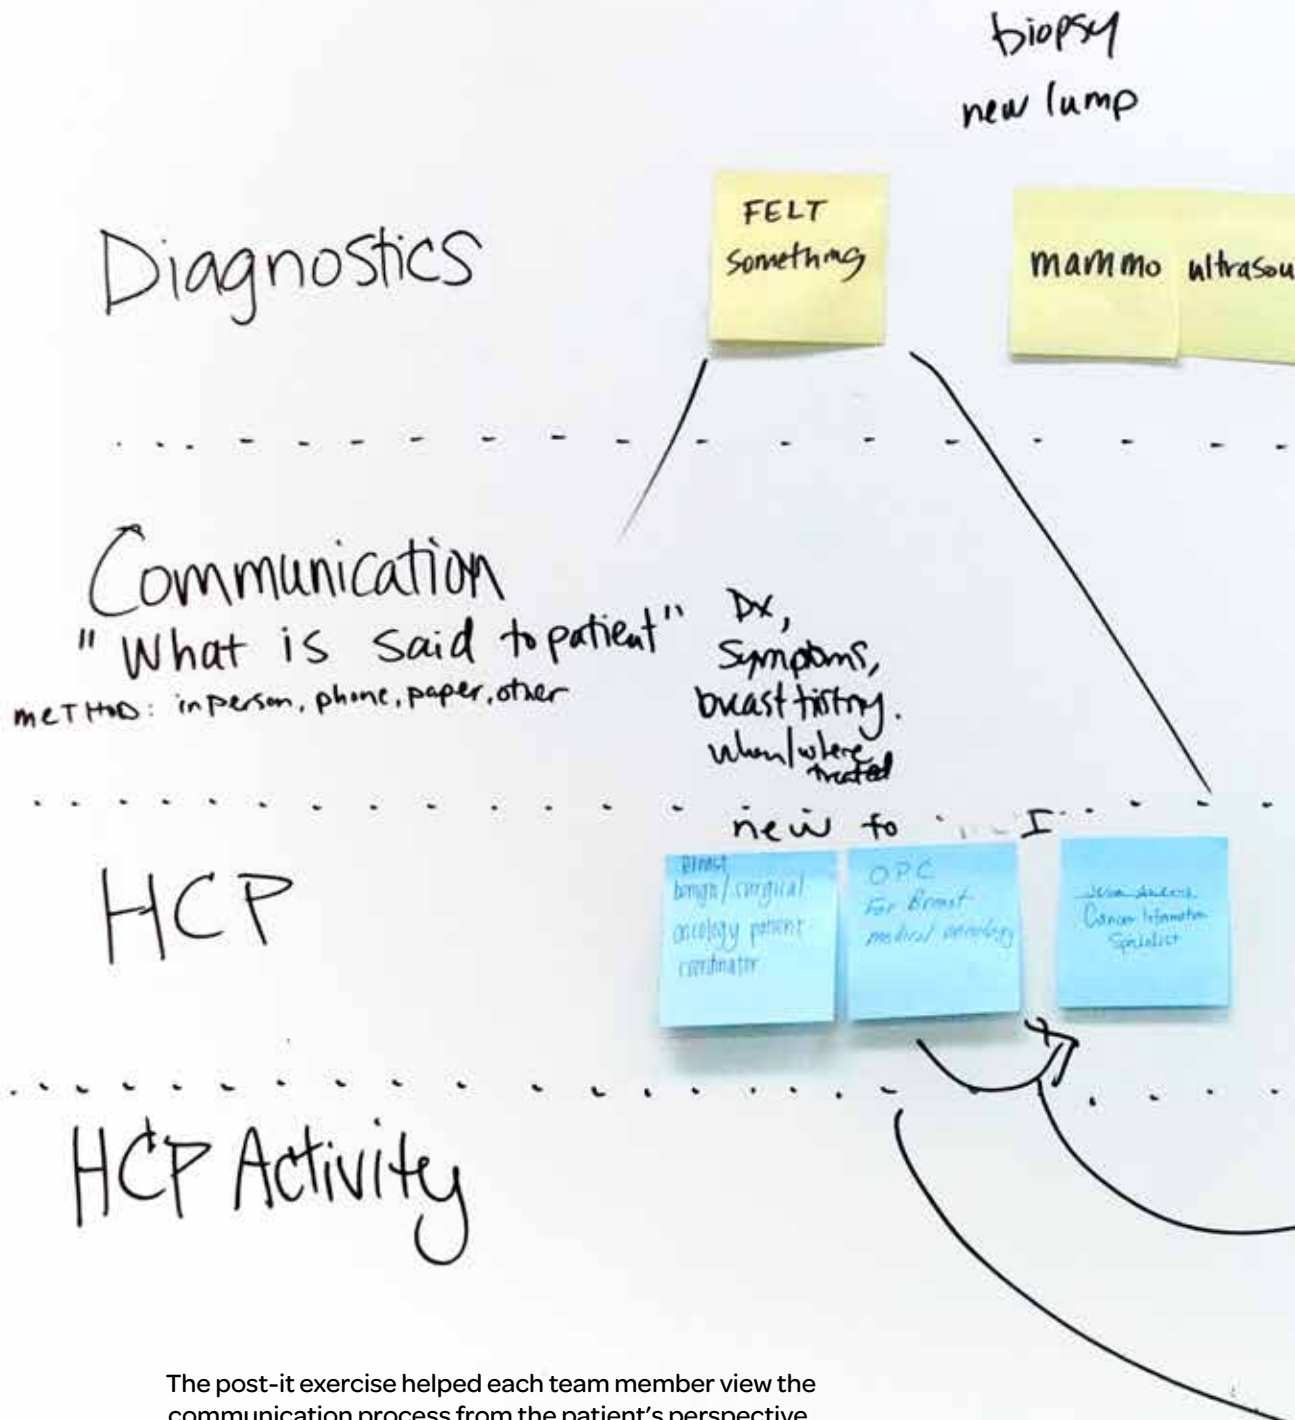 biopsy
new lump
FELT
something
mammo ultrasou
Diagnostics
Communication
"What is said to patient"
METHOD: in person, phone, paper, other
Dx,
Symptoms,
breast history.
when/where
treated
new to
HCP
Breast
benign/surgical
oncology patient
coordinator
OPC
For Breast
medical oncology
Cancer Information
Specialist
HCP Activity
The post-it exercise helped each team member view the
communication process from the patient's perspective